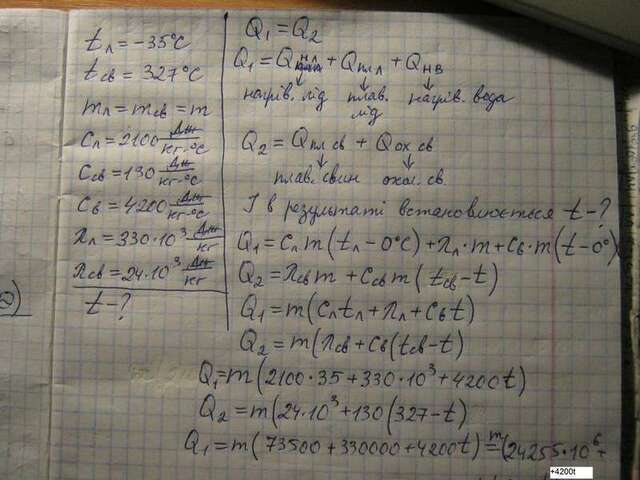 tл = -35°C
tсв = 327°C
mл = mсв = m
Cл = 2100 Дж/кг·°C
Cсв = 130 Дж/кг·°C
Cв = 4200 Дж/кг·°C
λл = 330·10³ Дж/кг
λсв = 24·10³ Дж/кг
t - ?
Q₁ = Q₂
Q₁ = Qнл + Qпл л + Qнв
нагрів. лід плав. лід нагрів. вода
Q₂ = Qпл св + Qох св
плав. свин охол. св.
І в результаті встановлюється t - ?
Q₁ = Cлm(tл - 0°C) + λл·m + Cв·m(t - 0°)
Q₂ = λсвm + Cсвm(tсв - t)
Q₁ = m(Cлtл + λл + Cвt)
Q₂ = m(λсв + Cв(tсв - t)
Q₁ = m(2100·35 + 330·10³ + 4200t)
Q₂ = m(24·10³ + 130(327 - t)
Q₁ = m(73500 + 330000 + 4200t) = m(24255·10⁶ +
+4200t